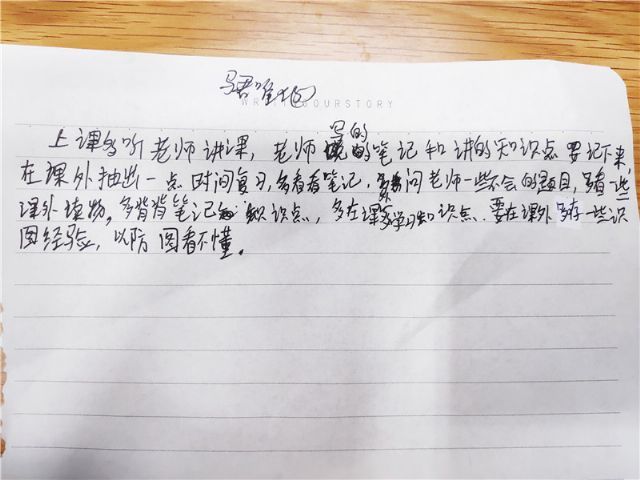 马君唯
WRITE YOUR STORY
写的
上课多听老师讲课，老师的笔记和讲的知识点要记下来，
在课外抽出一点时间复习，多看看笔记，多问老师一些不会的题目，多看一些
课外读物。多背背笔记知识点，多在课外学习知识点，要在课外多存一些识
图经验，以防图看不懂。